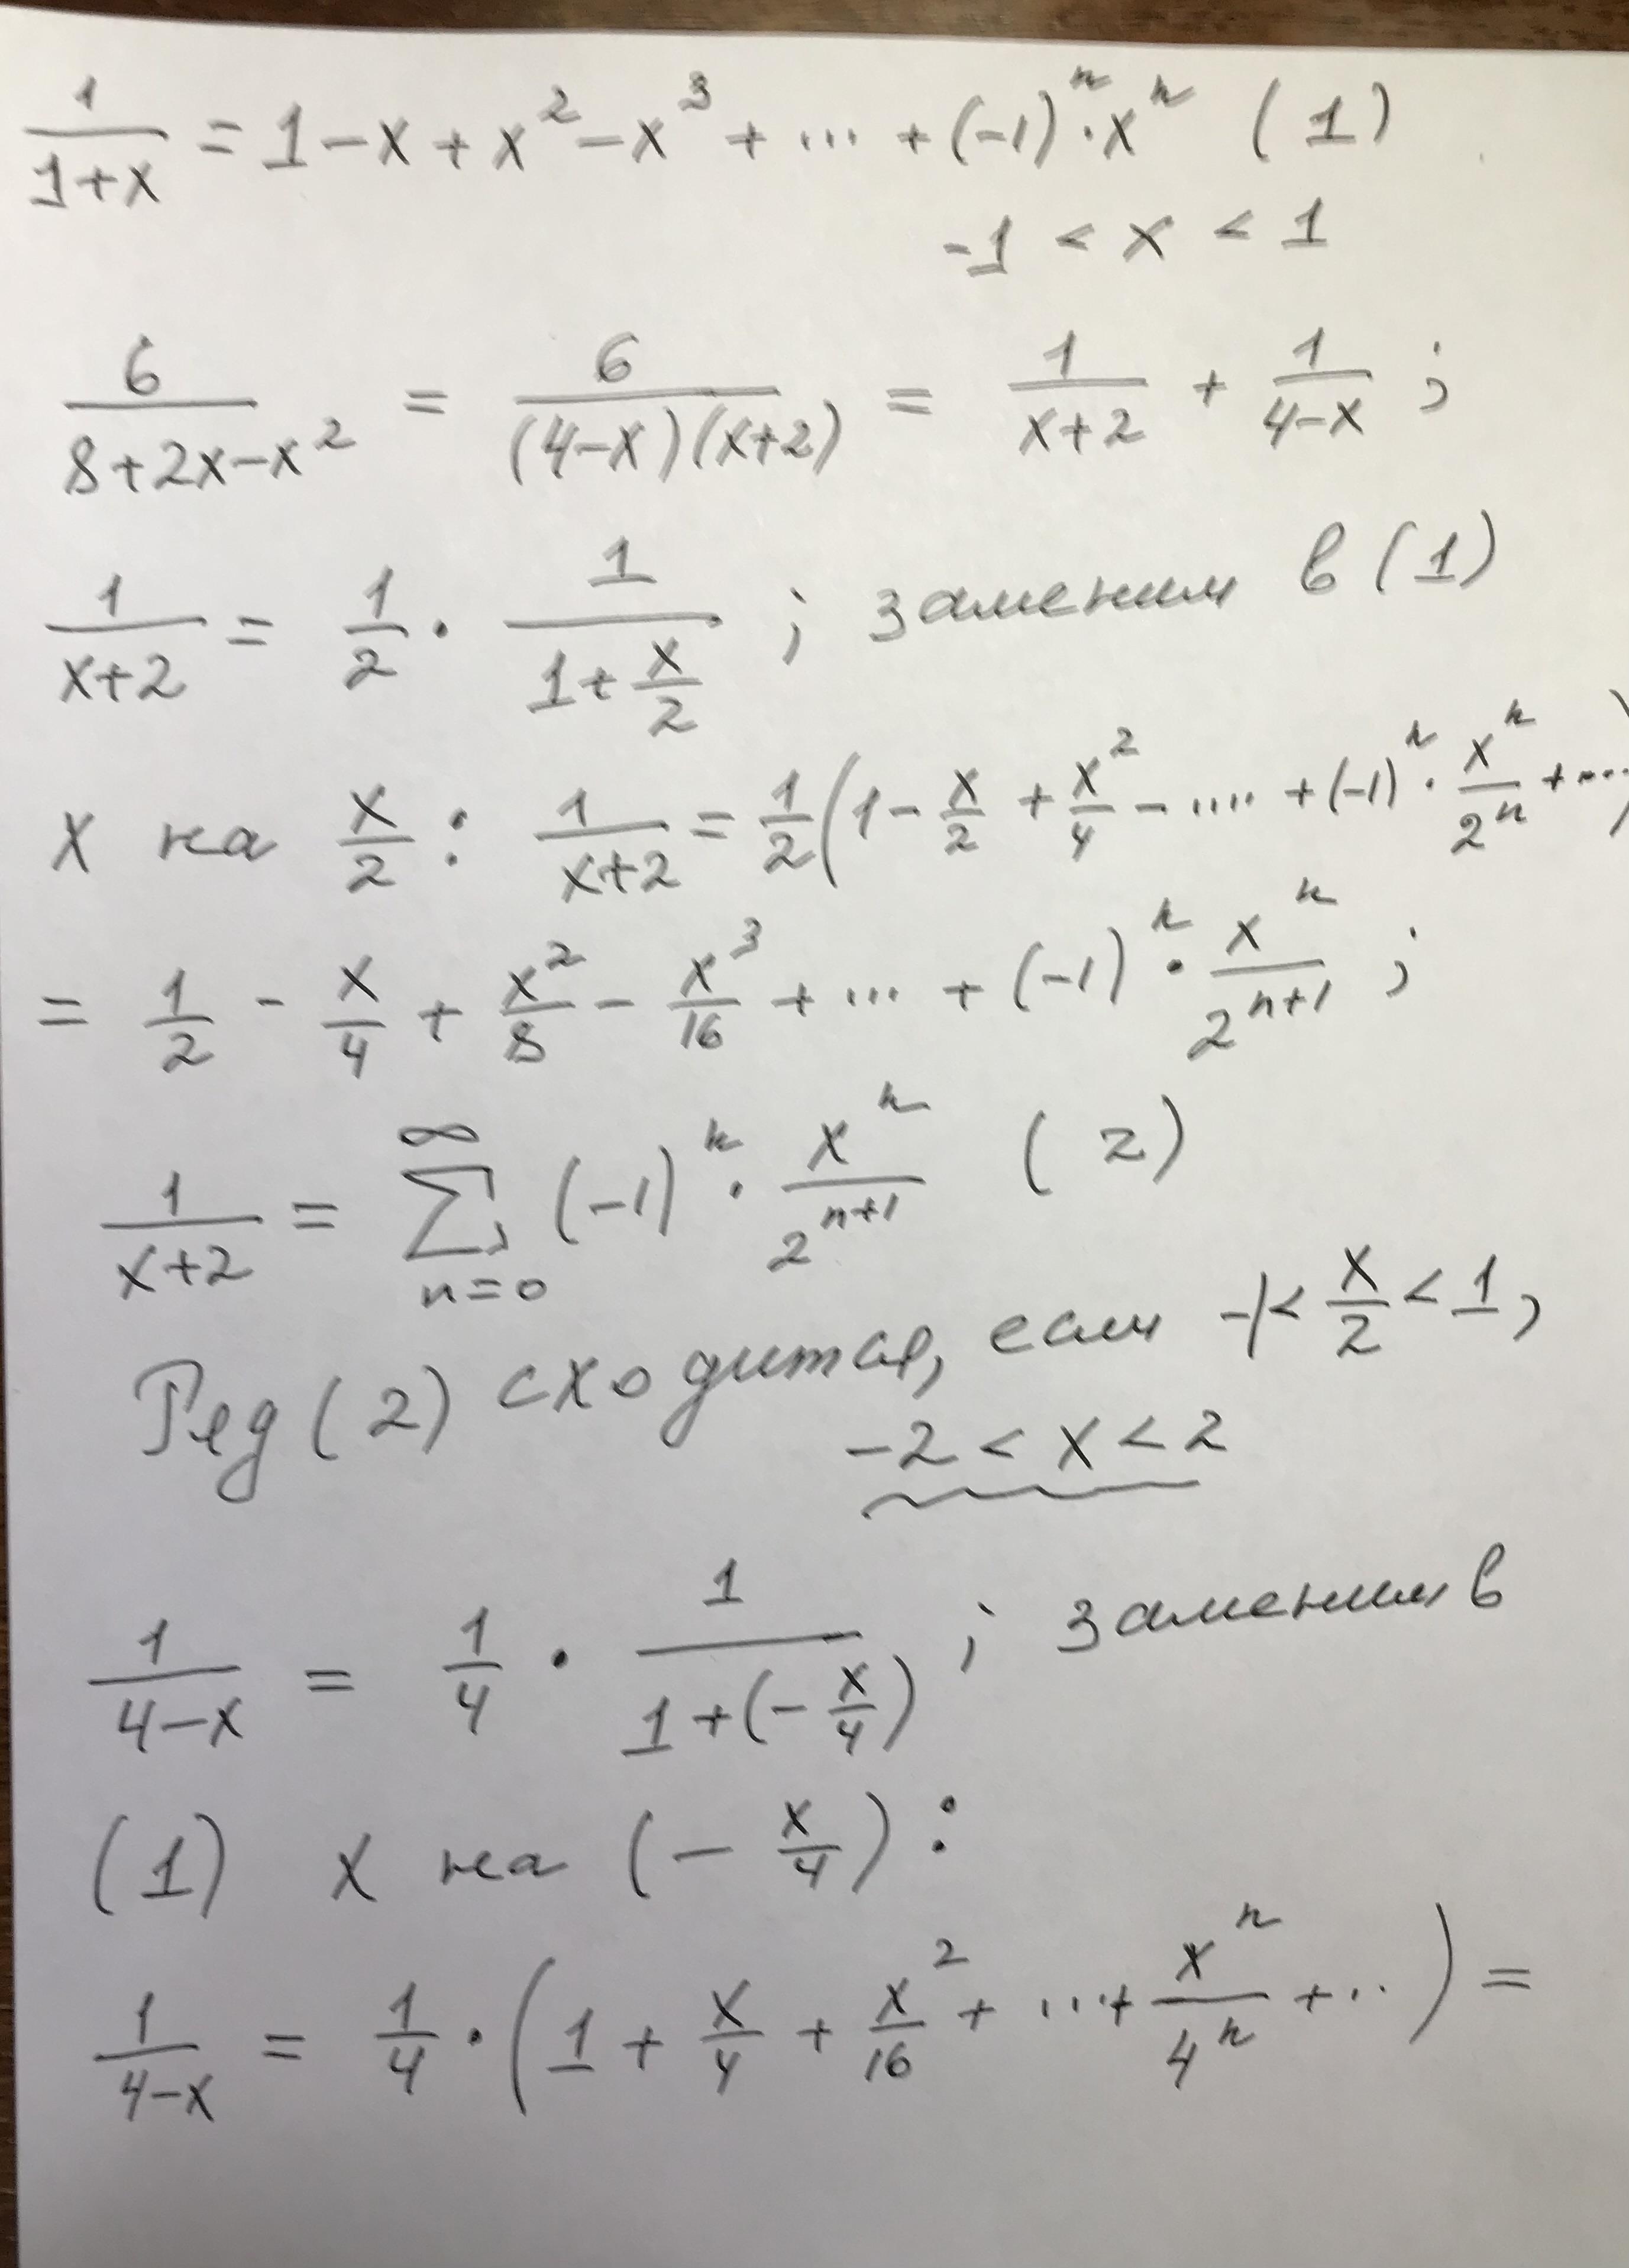 1/(1+x) = 1 - x + x² - x³ + ... + (-1)ⁿ · xⁿ (1)
-1 < x < 1
6/(8+2x-x²) = 6/((4-x)(x+2)) = 1/(x+2) + 1/(4-x) ;
1/(x+2) = 1/2 · 1/(1+x/2) ; заменим в (1)
x на x/2 : 1/(x+2) = 1/2 (1 - x/2 + x²/4 - .... + (-1)ⁿ · xⁿ/2ⁿ + ...)
= 1/2 - x/4 + x²/8 - x³/16 + ... + (-1)ⁿ · xⁿ/2ⁿ⁺¹ ;
1/(x+2) = ∑_{n=0}^{∞} (-1)ⁿ · xⁿ/2ⁿ⁺¹ (2)
Ряд (2) сходится, если -1 < x/2 < 1,
-2 < x < 2
1/(4-x) = 1/4 · 1/(1+(-x/4)) ; заменим в
(1) x на (- x/4) :
1/(4-x) = 1/4 · (1 + x/4 + x²/16 + ... + xⁿ/4ⁿ + ..) =